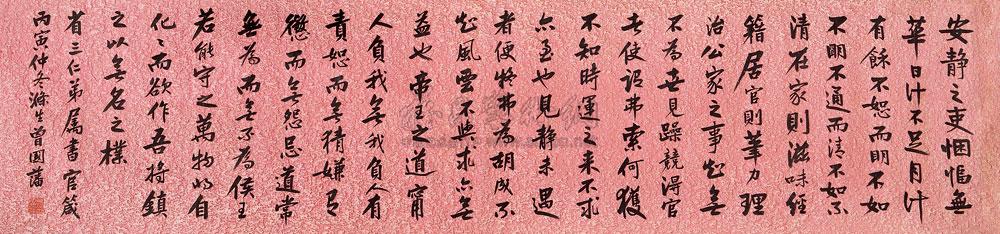 安静之吏悃愊無
華日计不足月计
有餘不恕而明不如
不明不通而清不如不
清在家則滋味經
籍居官則筆力理
治公家之事知無
不為世見躁競得官
者便弗索何獲
不知時運之來不求
亦至也見静未遇
者便将弗為胡成不
知風雲不興求亦無
益也帝王之道甯
人負我無我負人有
責恕而無猜嫌有
懲而無怨忌道常
無為而無不為侯王
若能守之萬物将自
化々而欲作吾将鎮
之以無名之樸
省三仁弟属書官箴
丙寅仲冬滌生曾國藩